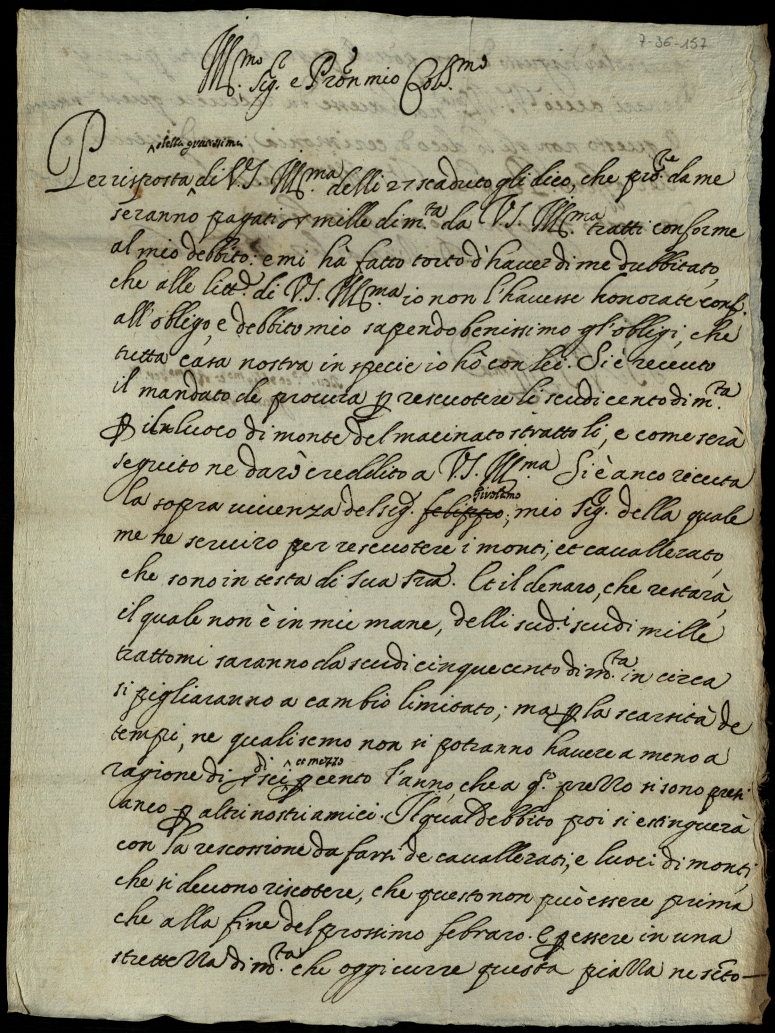 7-36-157
Ill.mo Sig.r e Pron mio Coll.mo
della gratissima
Per risposta di V.S. Ill.ma delli 27 scaduto gli dico, che pro.te da me
seranno pagati mille di m.ta da V.S. Ill.ma tratti conforme
al mio debbito: e mi hà fatto torto d'haver di me dubbitato,
che alle litt.e di V.S. Ill.ma io non l'havesse honorate conf.
all'obligo, e debbito mio sapendo benissimo gl'obligi, che
tutta casa nostra in specie io hò con lei. Si è receuto
il mandato de procura p rescuotere li scudi cento di m.ta
p il luoco di monte del macinato strattoli, e come serà
seguito ne darò creddito a V.S. Ill.ma Si è anco receuta
Girolamo
la sopra vivenza del sig. felippo, mio Sig. della quale
me ne serviro per rescuotere i monti, et cavallerato,
che sono in testa di sua sria. Et il denaro, che restarà,
il quale non è in mie mane, delli sud.i scudi mille
trattomi saranno da scudi cinquecento di m.ta in circa
si pigliaranno a cambio limitato; ma p la scarsità de
tempi, ne quali semo non si potranno havere a meno a
di et mezzo
ragione di sei p cento l'anno, che a q.o prezzo si sono presi
anco p altri nostri amici. Il qual debbito poi si estinguerà
con la rescossione da farsi de cavallerati, e luoci di monti,
che si devono riscotere, che questo non può essere prima
che alla fine del prossimo febraro. e p essere in una
strettezza di m.ta che oggi curre questa piazza ne sero-